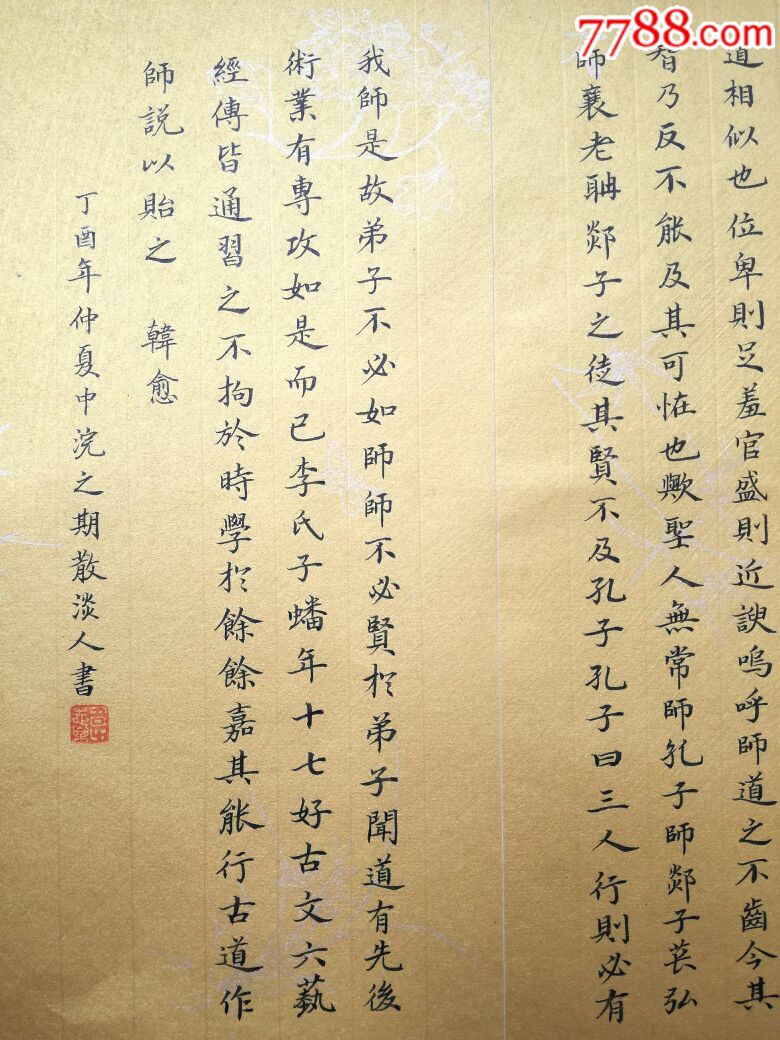 7788.com
道相似也位卑則足羞官盛則近諛嗚呼師道之不齒今其
智乃反不能及其可恠也歟聖人無常師孔子師郯子萇弘
師襄老聃郯子之徒其賢不及孔子孔子曰三人行則必有
我師是故弟子不必如師師不必賢於弟子聞道有先後
術業有專攻如是而已李氏子蟠年十七好古文六藝
經傳皆通習之不拘於時學於餘餘嘉其能行古道作
師說以貽之 韓愈
丁酉年仲夏中浣之期散淡人書